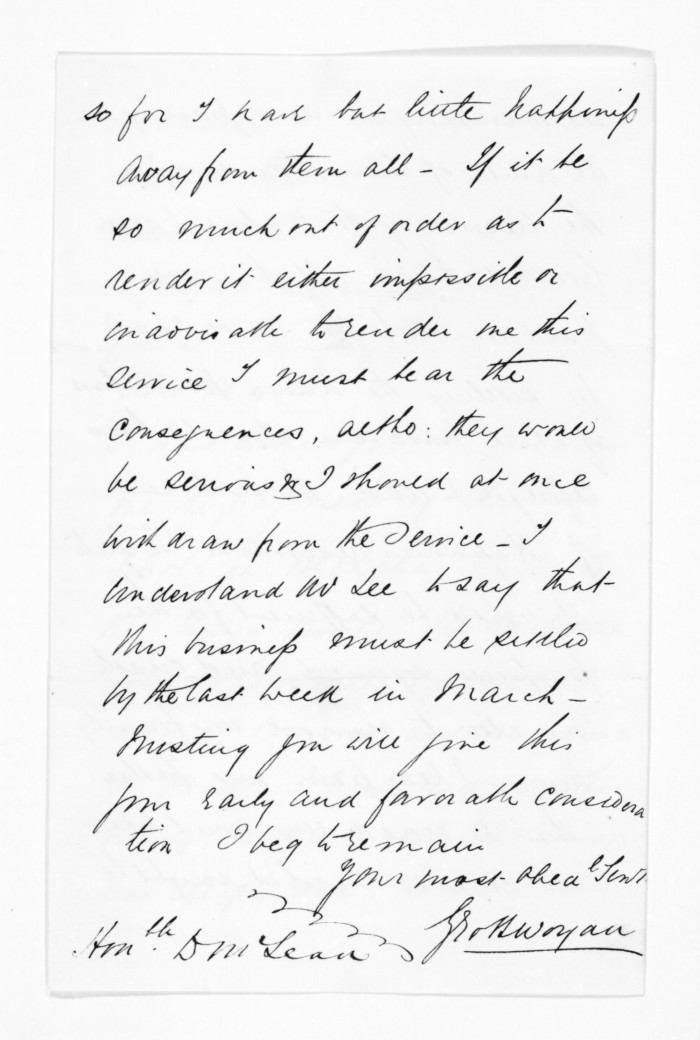 so for I have but little happiness
away from them all - If it be
so much out of order as to
render it either impossible or
inadvisable to render me this
service I must bear the
consequences, altho: they would
be serious & I should at once
withdraw from the Service - I
understand Mr Lee to say that
this business must be settled
by the last week in March -
Trusting you will give this
your early and favorable considera
tion I beg to remain
Your most obedt Servt
Hon'ble D McLean